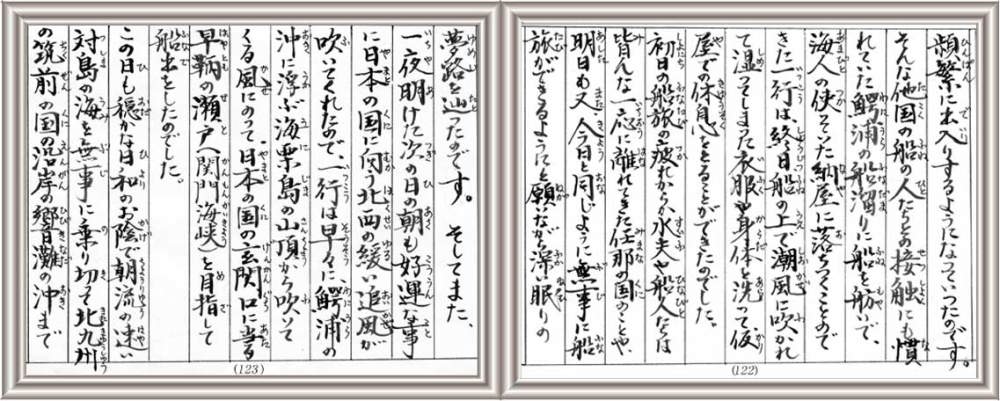 頻繁に出入りするようになっていったのです。
そんな他国の船の人たちとの接触にも慣
れていた鰐浦の船溜りに船を舫いで、
海人の使っていた納屋に落ちつくことので
きた一行は、終日船の上で潮風に吹かれ
て湿ってしまった衣服や身体を洗って仮
屋での休息をとることができたのでした。
初日の船旅の疲れからか水夫や船人ならは
皆んな一応に離れてきた任那の国のことや、
明日も又、今日と同じように無事に船
旅ができるようにと願いながら深い眠りの
(122)
夢路を辿ったのです。そしてまた、
一夜明けた次の日の朝も好運な事
に日本の国に向う北西の緩い追風が
吹いてくれたので、一行は早々に鰐浦の
沖に浮ぶ海栗島の山頂から吹いて
くる風にのって日本の国の玄関口に当る
早鞆の瀬戸(関門海峡)を目指して
船出をしたのでした。
この日も穏かな日和のお陰で朝流の速い
対島の海を無事に乗り切って北九州
の筑前の国の沿岸の響灘の沖まで
(123)